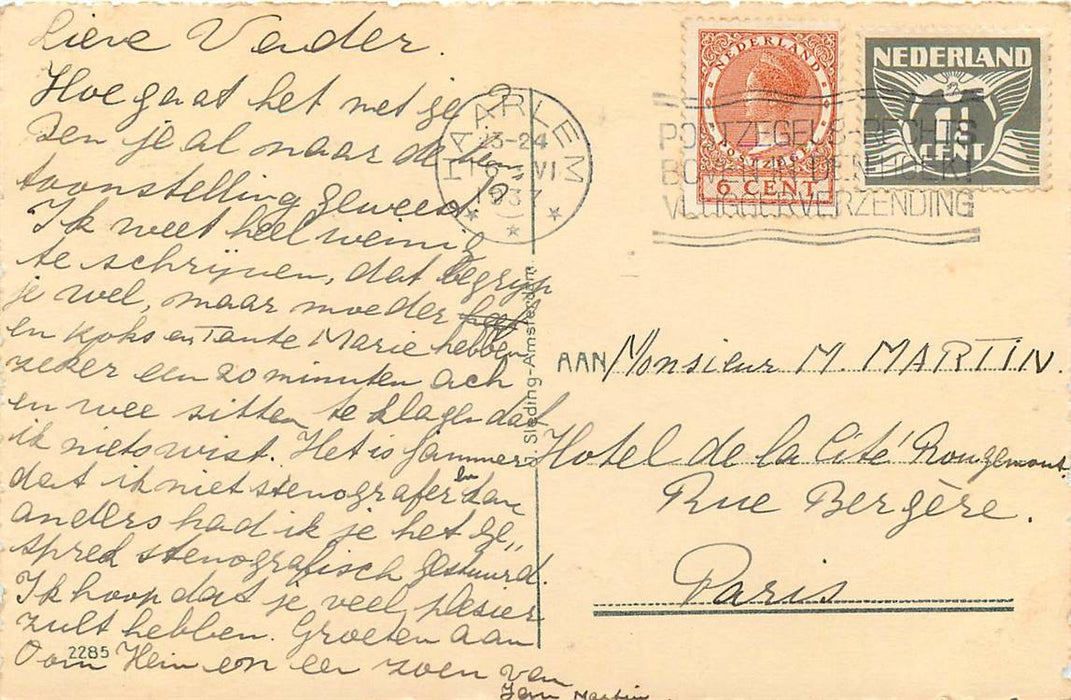 Lieve Vader.
Hoe gaat het met je?
Ben je al naar de ten
toonstelling geweest
Ik weet heel weinig
te schrijven, dat begrijp
je wel, maar moeder heeft
en Koks en Tante Marie hebben
zeker een 20 minuten ach
en wee zitten te klagen dat
ik niets wist. Het is jammer
dat ik niet stenograferen kan
anders had ik je het ge„
sprek stenografisch gestuurd.
Ik hoop dat je veel plesier
zult hebben. Groeten aan
Oom Hein en een zoen van
Martin
2285
HAARLEM
23-24
VI
1937
Sleding-Amsterdam
NEDERLAND
POSTZEGEL
6 CENT
NEDERLAND
1½
CENT
POSTZEGELS RECHTS
BOVEN IN DEN HOEK!
VLUGGER VERZENDING
AAN Monsieur M. MARTIN.
Hotel de la Cité Rougemont.
Rue Bergère.
Paris